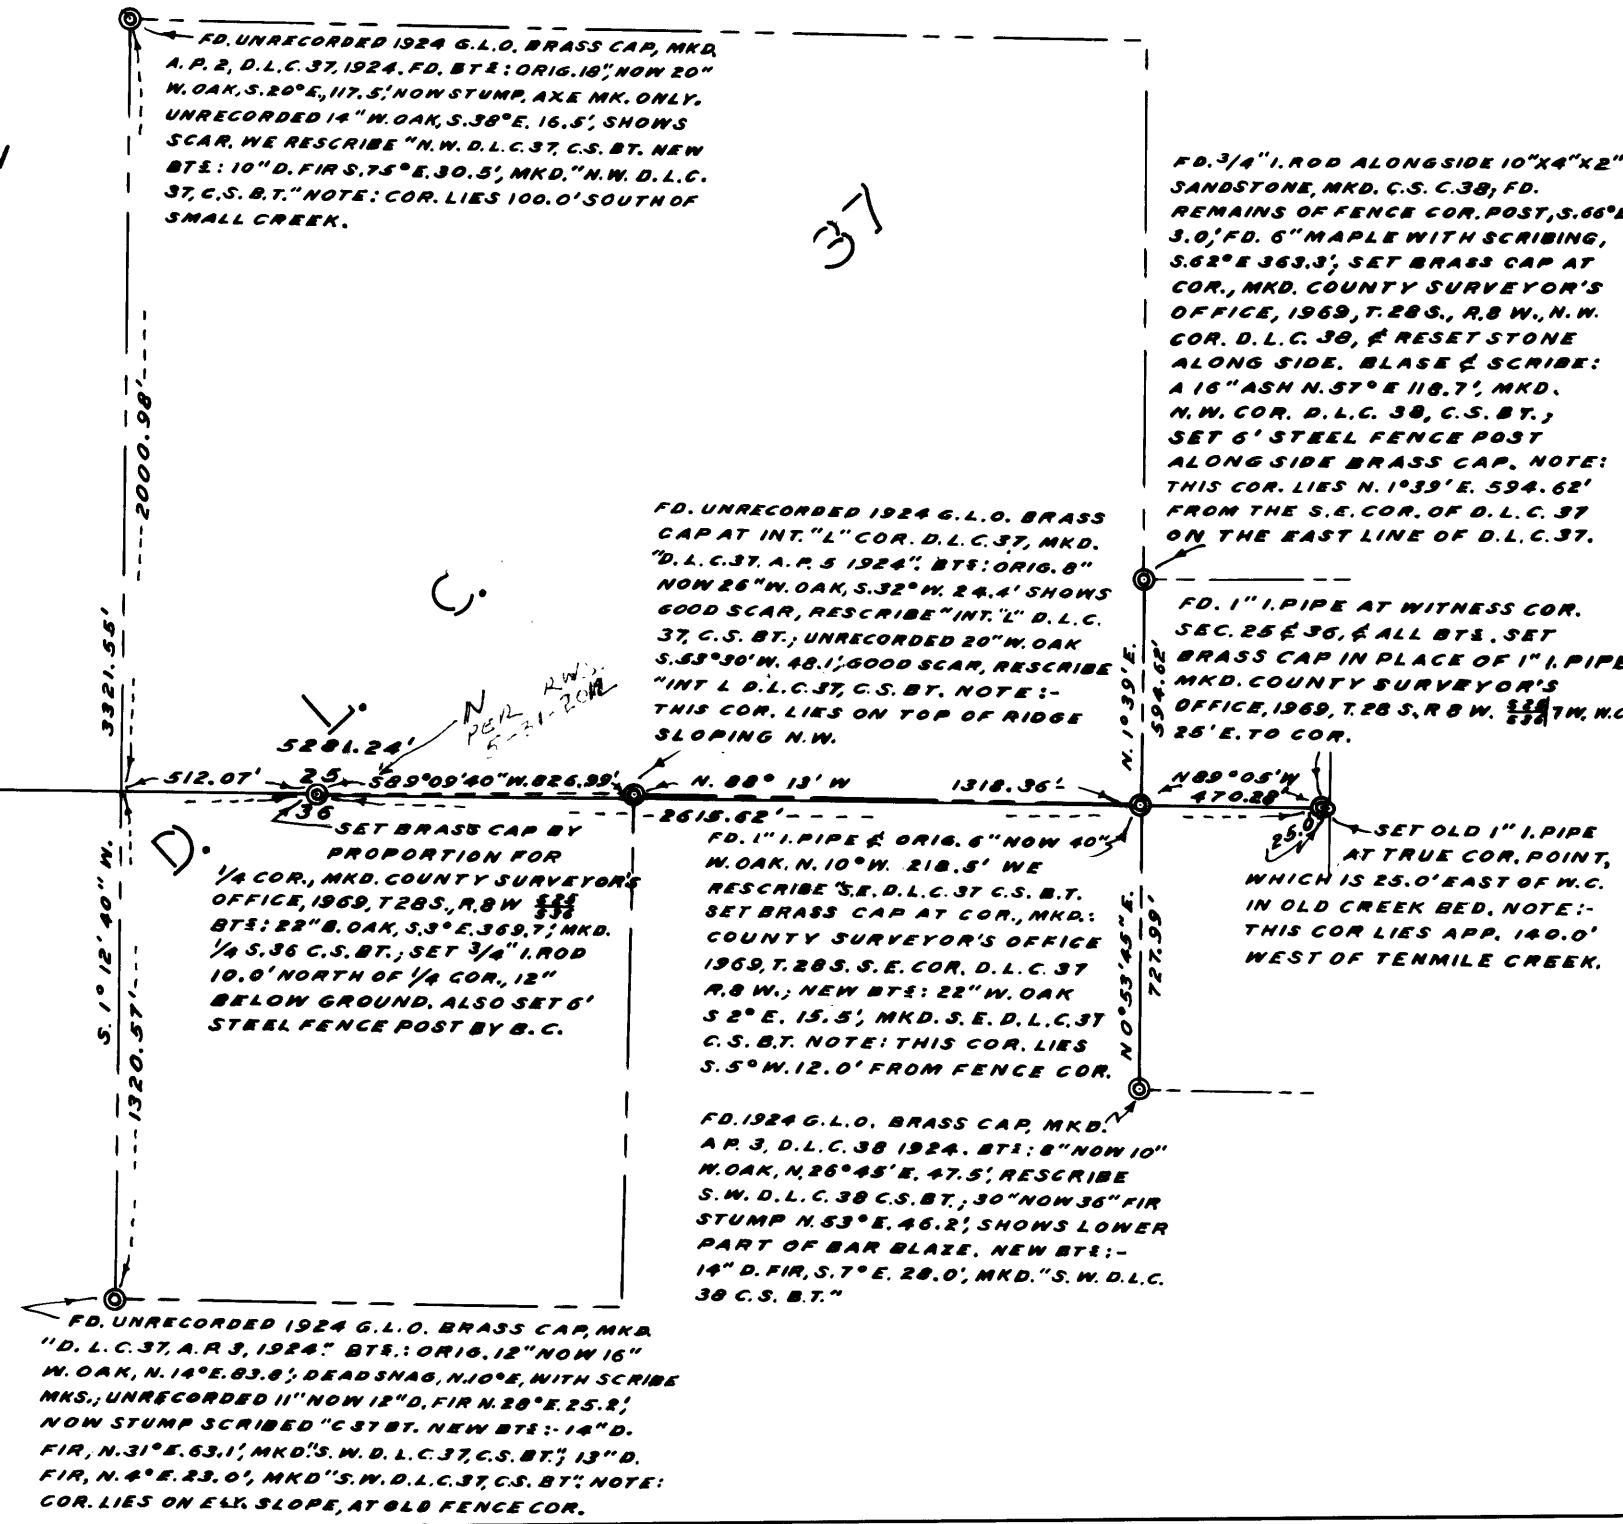 FD. UNRECORDED 1924 G.L.O. BRASS CAP, MKD.
A.P. 2, D.L.C. 37, 1924. FD. BTS: ORIG. 18", NOW 20"
W. OAK, S.20°E., 117.5', NOW STUMP, AXE MK. ONLY.
UNRECORDED 14" W. OAK, S.38°E. 16.5', SHOWS
SCAR. WE RESCRIBE "N.W. D.L.C. 37, C.S. BT. NEW
BTS: 10" D. FIR S.75°E. 30.5', MKD. "N.W. D.L.C.
37, C.S. B.T." NOTE: COR. LIES 100.0' SOUTH OF
SMALL CREEK.
37
FD. 3/4" I. ROD ALONGSIDE 10"X4"X2"
SANDSTONE, MKD. C.S. C.38; FD.
REMAINS OF FENCE COR. POST, S.66°E
3.0'; FD. 6" MAPLE WITH SCRIBING,
S.62°E 363.3'; SET BRASS CAP AT
COR., MKD. COUNTY SURVEYOR'S
OFFICE, 1969, T. 28 S., R. 8 W., N.W.
COR. D.L.C. 38, & RESET STONE
ALONG SIDE. BLASE & SCRIBE:
A 16" ASH N.57°E 118.7', MKD.
N.W. COR. D.L.C. 38, C.S. BT.;
SET 6' STEEL FENCE POST
ALONG SIDE BRASS CAP. NOTE:
THIS COR. LIES N. 1°39' E. 594.62'
FROM THE S.E. COR. OF D.L.C. 37
ON THE EAST LINE OF D.L.C. 37.
2000.98'
3321.55'
FD. UNRECORDED 1924 G.L.O. BRASS
CAP AT INT. "L" COR. D.L.C. 37, MKD.
"D.L.C. 37. A.P. 5 1924". BTS: ORIG. 8"
NOW 26" W. OAK, S.32°W. 24.4' SHOWS
GOOD SCAR, RESCRIBE "INT. "L" D.L.C.
37, C.S. BT.; UNRECORDED 20" W. OAK
S.53°30'W. 48.1', GOOD SCAR, RESCRIBE
"INT L D.L.C. 37, C.S. BT. NOTE:-
THIS COR. LIES ON TOP OF RIDGE
SLOPING N.W.
D. L. C.
N
PER R.W.S.
5-31-2012
N. 1°39' E.
594.62'
FD. 1" I. PIPE AT WITNESS COR.
SEC. 25 & 36, & ALL BTS. SET
BRASS CAP IN PLACE OF 1" I. PIPE
MKD. COUNTY SURVEYOR'S
OFFICE, 1969, T. 28 S, R 8 W. S25/S36 7 W. W.C.
25' E. TO COR.
5281.24'
512.07'
25
36
S89°09'40" W. 826.99'
N. 88° 13' W
1318.36'
2615.62'
N 89°05' W
470.28'
25.0'
SET BRASS CAP BY
PROPORTION FOR
1/4 COR., MKD. COUNTY SURVEYOR'S
OFFICE, 1969, T 28 S., R. 8 W S25/S36
BTS: 22" B. OAK, S.3°E. 369.7'; MKD.
1/4 S. 36 C.S. BT.; SET 3/4" I. ROD
10.0' NORTH OF 1/4 COR., 12"
BELOW GROUND. ALSO SET 6'
STEEL FENCE POST BY B.C.
S. 1° 12' 40" W.
1320.57'
FD. 1" I. PIPE & ORIG. 6" NOW 40"
W. OAK, N. 10°W. 218.5' WE
RESCRIBE "S.E. D.L.C. 37 C.S. B.T.
SET BRASS CAP AT COR., MKD.:
COUNTY SURVEYOR'S OFFICE
1969, T. 28 S. S.E. COR. D.L.C. 37
R. 8 W.; NEW BTS: 22" W. OAK
S 2°E. 15.5', MKD. S.E. D.L.C. 37
C.S. B.T. NOTE: THIS COR. LIES
S. 5°W. 12.0' FROM FENCE COR.
N 0°53'45" E.
727.99'
SET OLD 1" I. PIPE
AT TRUE COR. POINT,
WHICH IS 25.0' EAST OF W.C.
IN OLD CREEK BED. NOTE:-
THIS COR LIES APP. 140.0'
WEST OF TENMILE CREEK.
FD. 1924 G.L.O. BRASS CAP, MKD.
A.P. 3, D.L.C. 38 1924. BTS: 8" NOW 10"
W. OAK, N. 26°45' E. 47.5', RESCRIBE
S.W. D.L.C. 38 C.S. BT.; 30" NOW 36" FIR
STUMP N. 53°E. 46.2', SHOWS LOWER
PART OF BAR BLAZE. NEW BTS:-
14" D. FIR, S. 7°E. 28.0', MKD. "S.W. D.L.C.
38 C.S. B.T."
FD. UNRECORDED 1924 G.L.O. BRASS CAP, MKD.
"D.L.C. 37, A.P. 3, 1924." BTS.: ORIG. 12" NOW 16"
W. OAK, N. 14°E. 83.8'; DEAD SNAG, N.10°E, WITH SCRIBE
MKS.; UNRECORDED 11" NOW 12" D. FIR N. 28°E. 25.2',
NOW STUMP SCRIBED "C 37 BT. NEW BTS:- 14" D.
FIR, N. 31°E. 63.1', MKD. "S.W. D.L.C. 37, C.S. BT."; 13" D.
FIR, N. 4°E. 23.0', MKD "S.W. D.L.C. 37, C.S. BT". NOTE:
COR. LIES ON ELY. SLOPE, AT OLD FENCE COR.